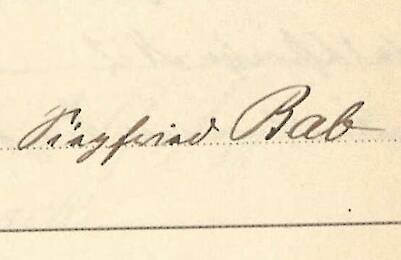 Siegfried Bab